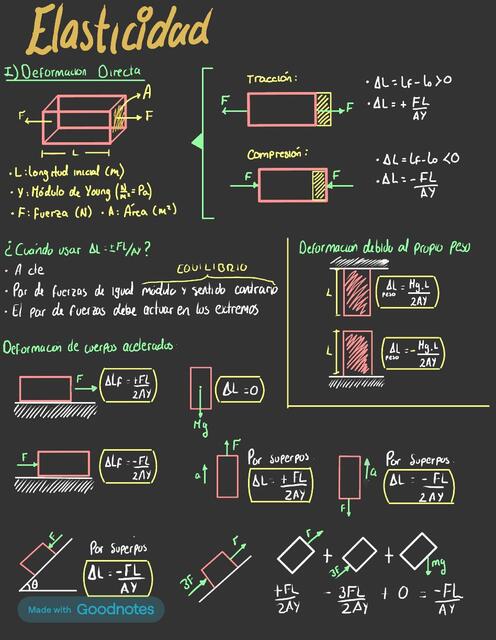 Elasticidad
I) Deformacion Directa
A
F
F
L
• L: longitud inicial (m)
• Y: Módulo de Young (N/m² = Pa)
• F: Fuerza (N) • A: Área (m²)
Tracción:
F
F
• ΔL = Lf - Lo > 0
• ΔL = + FL/AY
Compresión:
F
F
• ΔL = Lf - Lo < 0
• ΔL = - FL/AY
¿Cuándo usar ΔL = ± FL/AY?
• A cte
EQUILIBRIO
• Par de fuerzas de igual módulo y sentido contrario
• El par de fuerzas debe actuar en los extremos
Deformación debido al propio peso
L
ΔL peso = Mg.L/2AY
L
ΔL peso = - Mg.L/2AY
Deformacion de cuerpos acelerados:
F
ΔLF = +FL/2AY
Mg
ΔL = 0
F
ΔLF = -FL/2AY
a
F
Por superpos
ΔL = + FL/2AY
a
F
Por superpos
ΔL = - FL/2AY
F
θ
Por superpos
ΔL = -FL/AY
3F
F
F
+
3F
+
mg
+FL/2AY - 3FL/2AY + 0 = -FL/AY
Made with Goodnotes